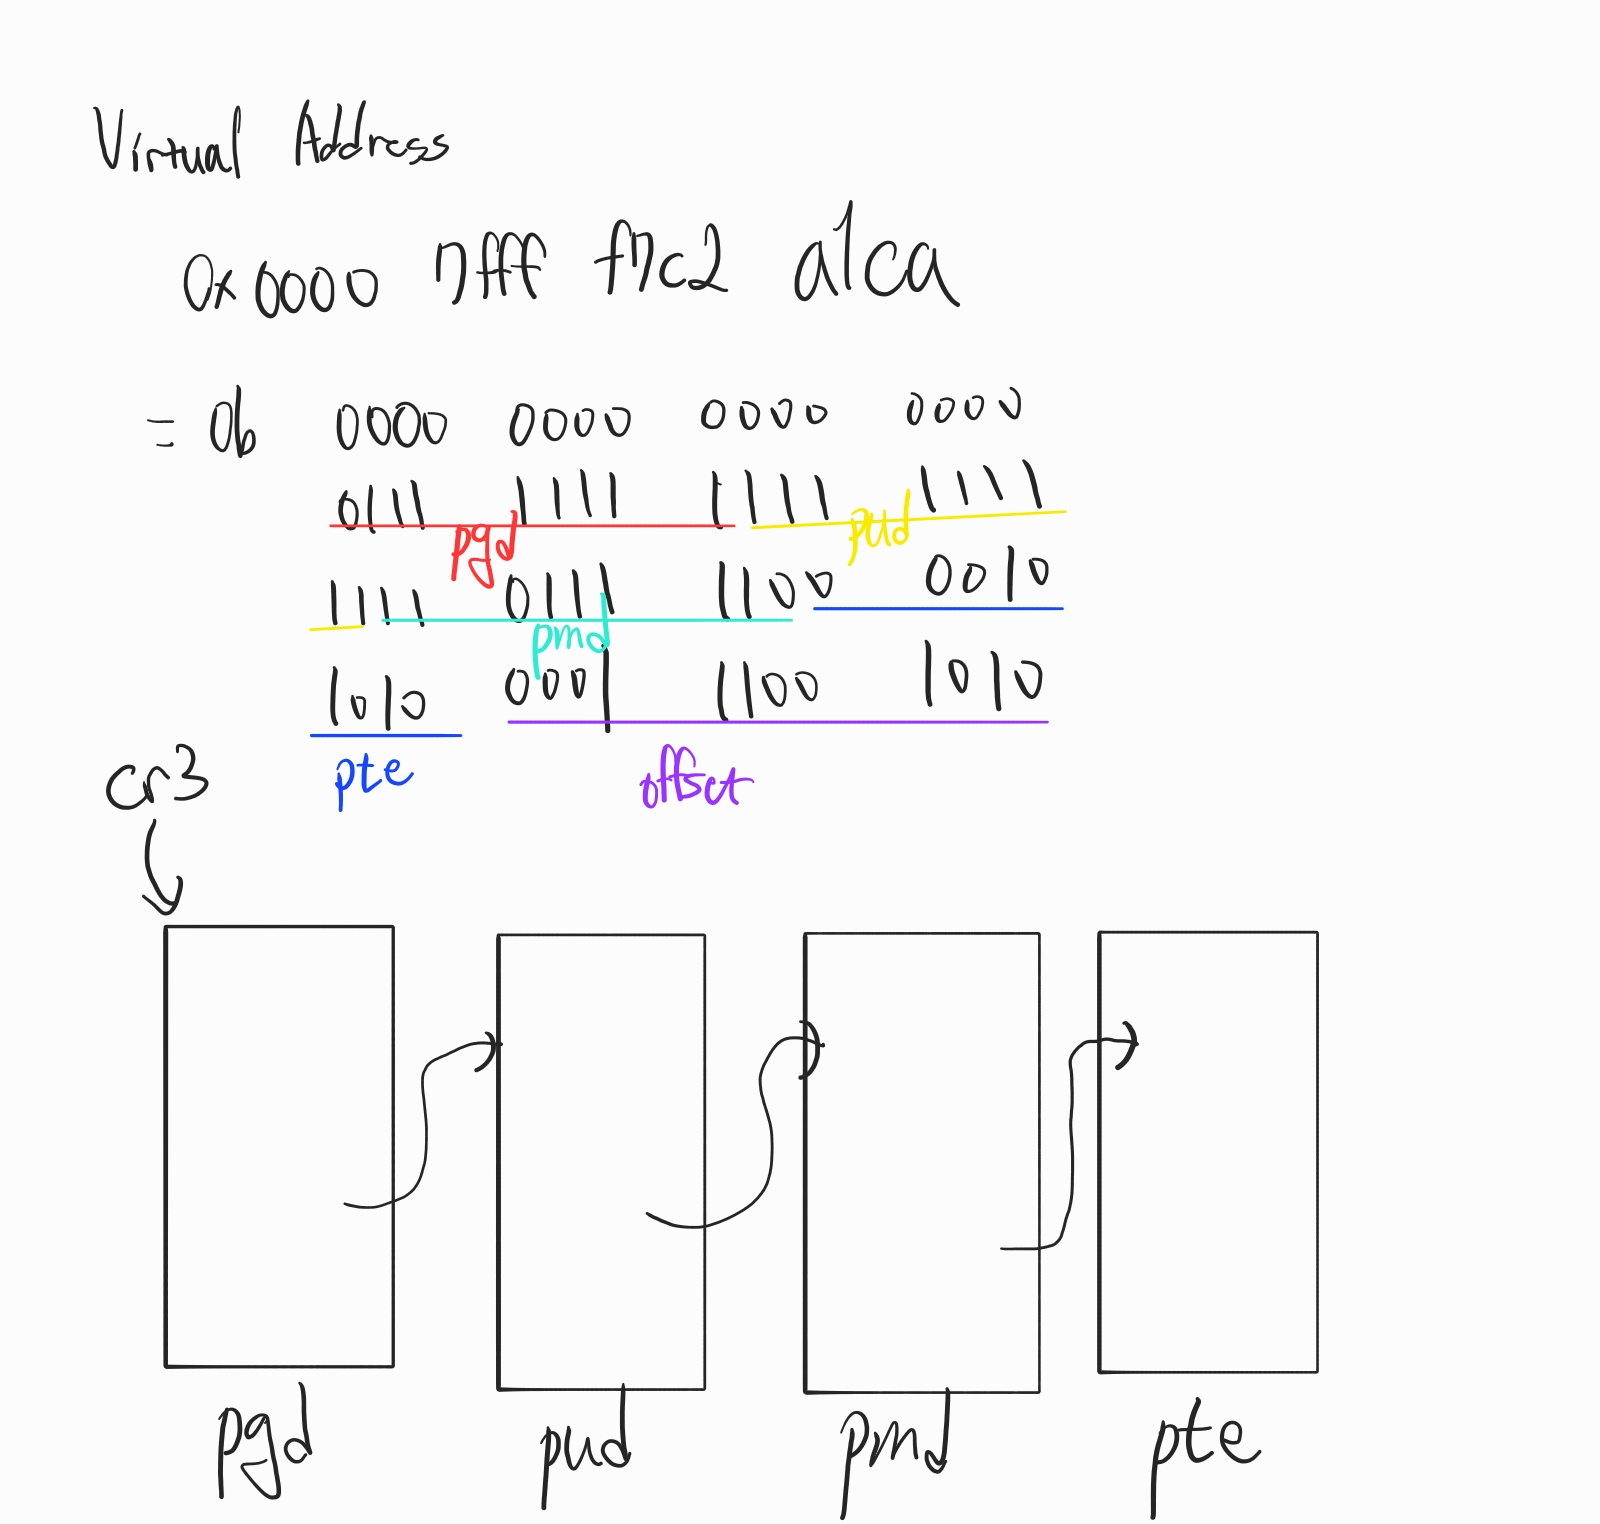 Virtual Address
0x0000 7fff f7c2 a1ca
= 0b 0000 0000 0000 0000
0111 1111 1111 1111
pgd pud
1111 0111 1100 0010
pmd
1010 0001 1100 1010
pte offset
cr3
pgd pud pmd pte